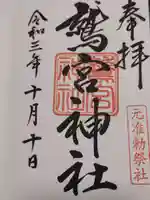 奉拝
元准勅祭社
鷲宮神社
令和三年十月十日